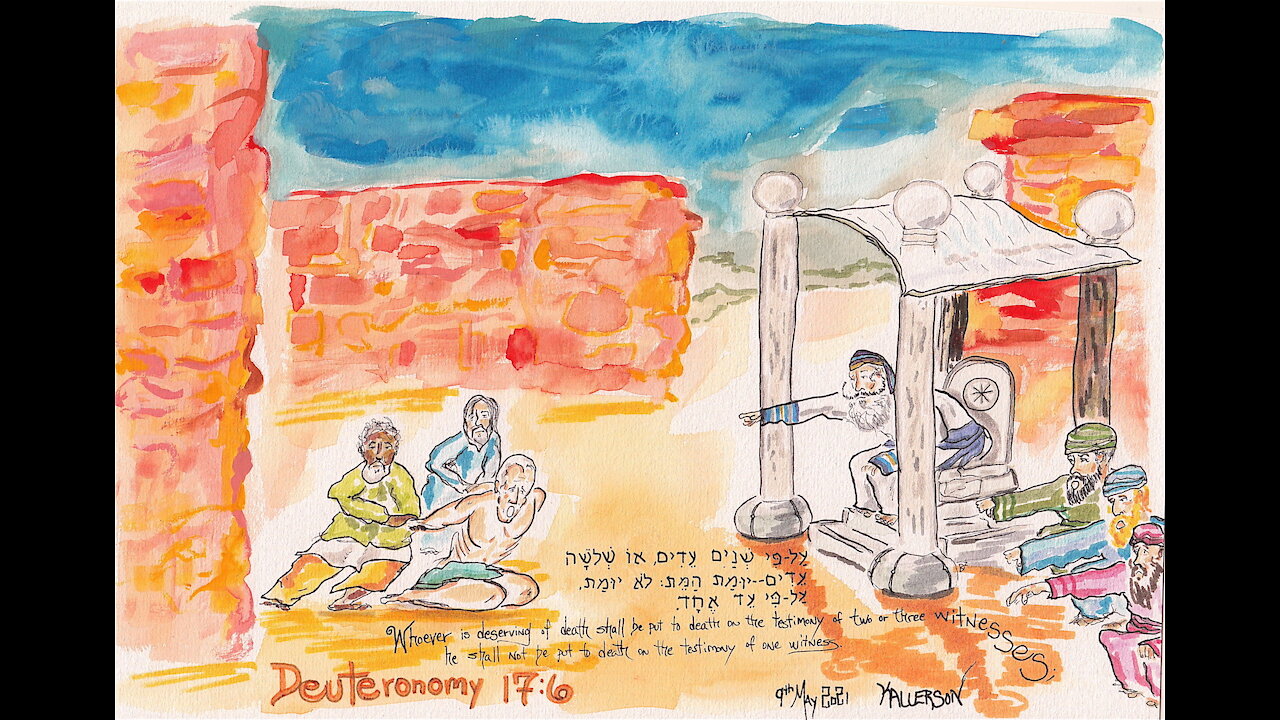 עַל-פִּי שְׁנַיִם עֵדִים, אוֹ שְׁלֹשָׁה
עֵדִים--יוּמַת הַמֵּת: לֹא יוּמַת,
עַל-פִּי עֵד אֶחָד.
Whoever is deserving of death shall be put to death on the testimony of two or three witnesses;
he shall not be put to death on the testimony of one witness.
Deuteronomy 17:6
9th May 2021 KALLERSON